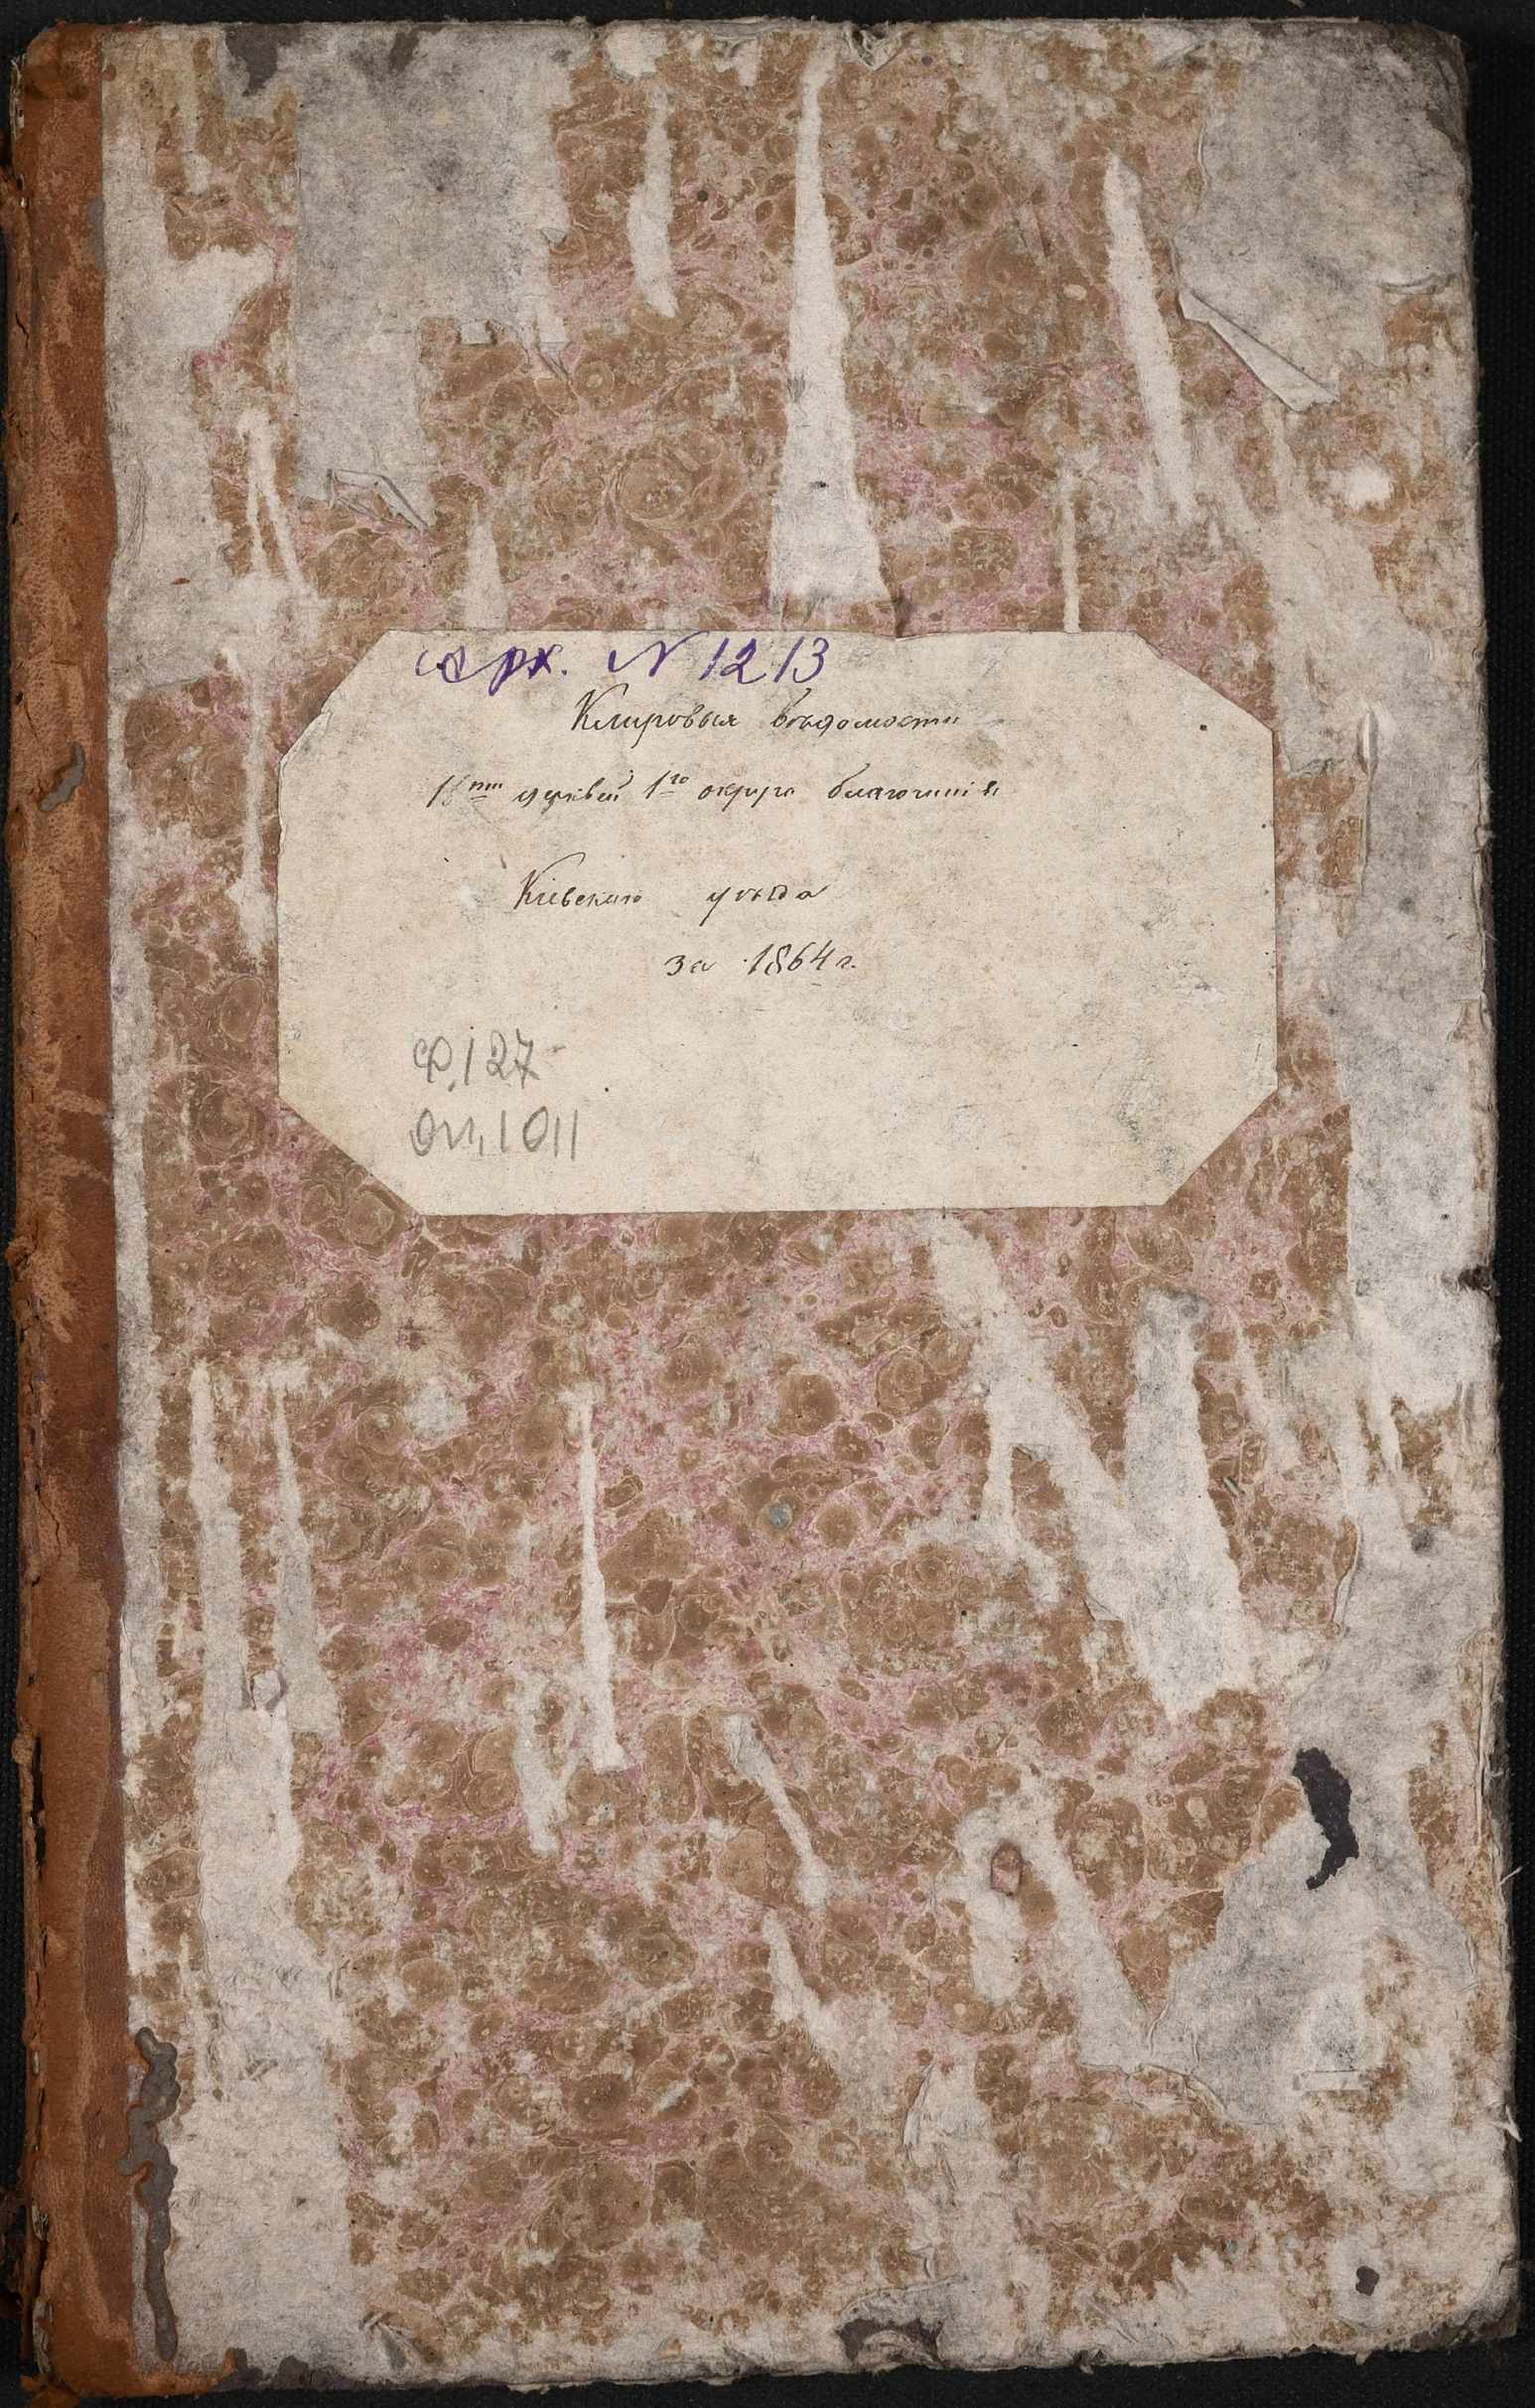 арх. N 1213
Клировыя вѣдомости
церквей 1го округа благочинія
Кіевскаго уѣзда
за 1864 г.
Ф. 127
оп. 1011